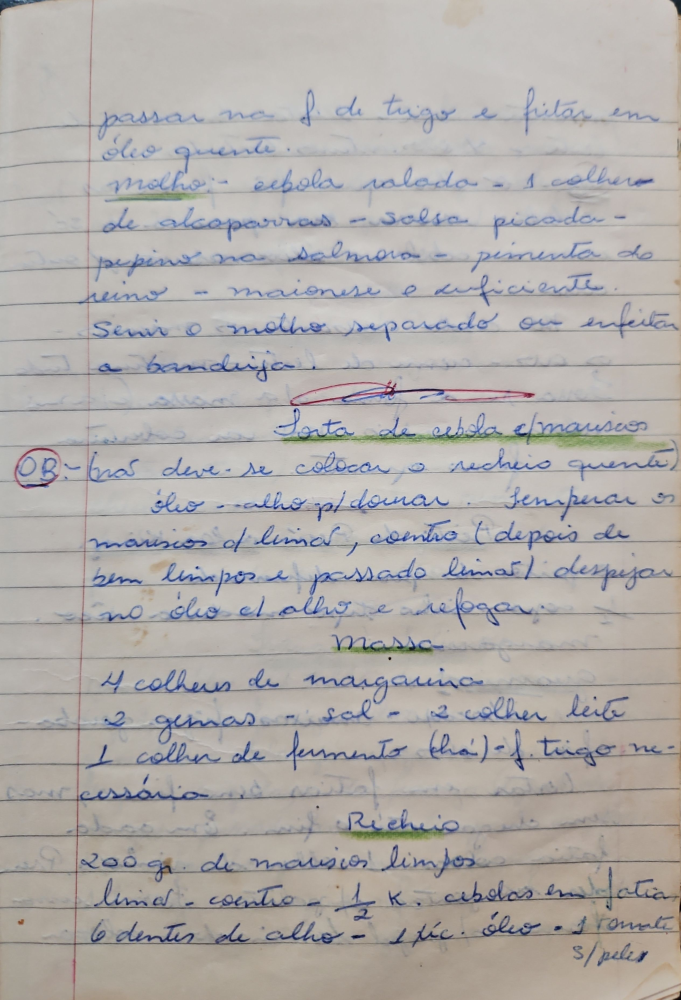 passar na f. de trigo e fritar em
óleo quente.
Molho - cebola ralada - 1 colher
de alcaparras - salsa picada -
pepino na salmora - pimenta do
reino - maionese o suficiente.
Servir o molho separado ou enfeitar
a bandeija.
Torta de cebola c/mariscos
OB:- (não deve-se colocar o recheio quente)
óleo - alho p/dourar. Temperar os
mariscos c/ limão, coentro (depois de
bem limpos e passado limão) despejar
no óleo c/ alho e refogar.
Massa
4 colheres de margarina
2 gemas - sal - 2 colher leite
1 colher de fermento (chá) - f. trigo ne-
cessária.
Recheio
200 gr. de mariscos limpos
limão - coentro - 1/2 K. cebolas em fatias
6 dentes de alho - 1 xíc. óleo - 1 tomate
s/peles